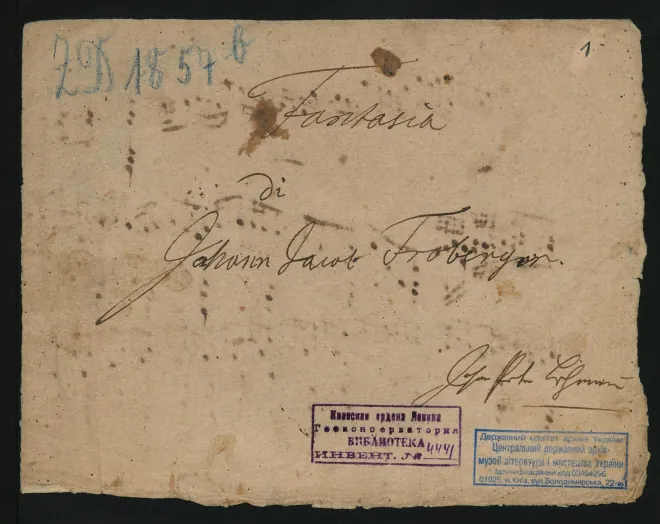 ZD 1857 b
1
Fantasia
di
Johann Jacob Froberger.
Киевская ордена Ленина
Госконсерватория
БИБЛИОТЕКА
ИНВЕНТ. № 4441
Державний комітет архівів України
Центральний державний архів-
музей літератури і мистецтва України
Ідентифікаційний код 03494296
01025, м. Київ, вул. Володимирська, 22-а